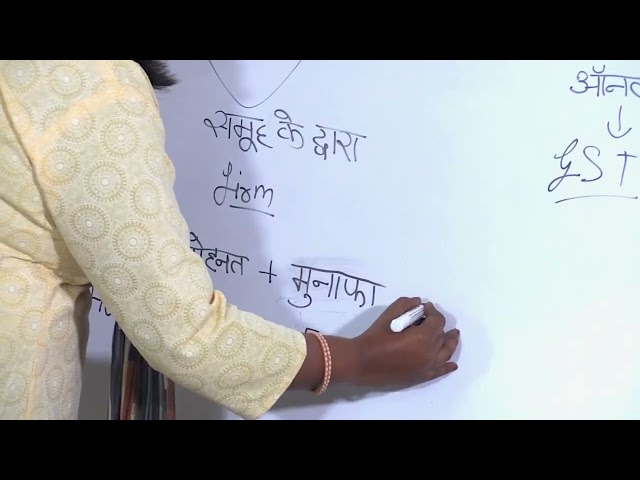 समूह के द्वारा
firm
मेहनत + मुनाफा
GST